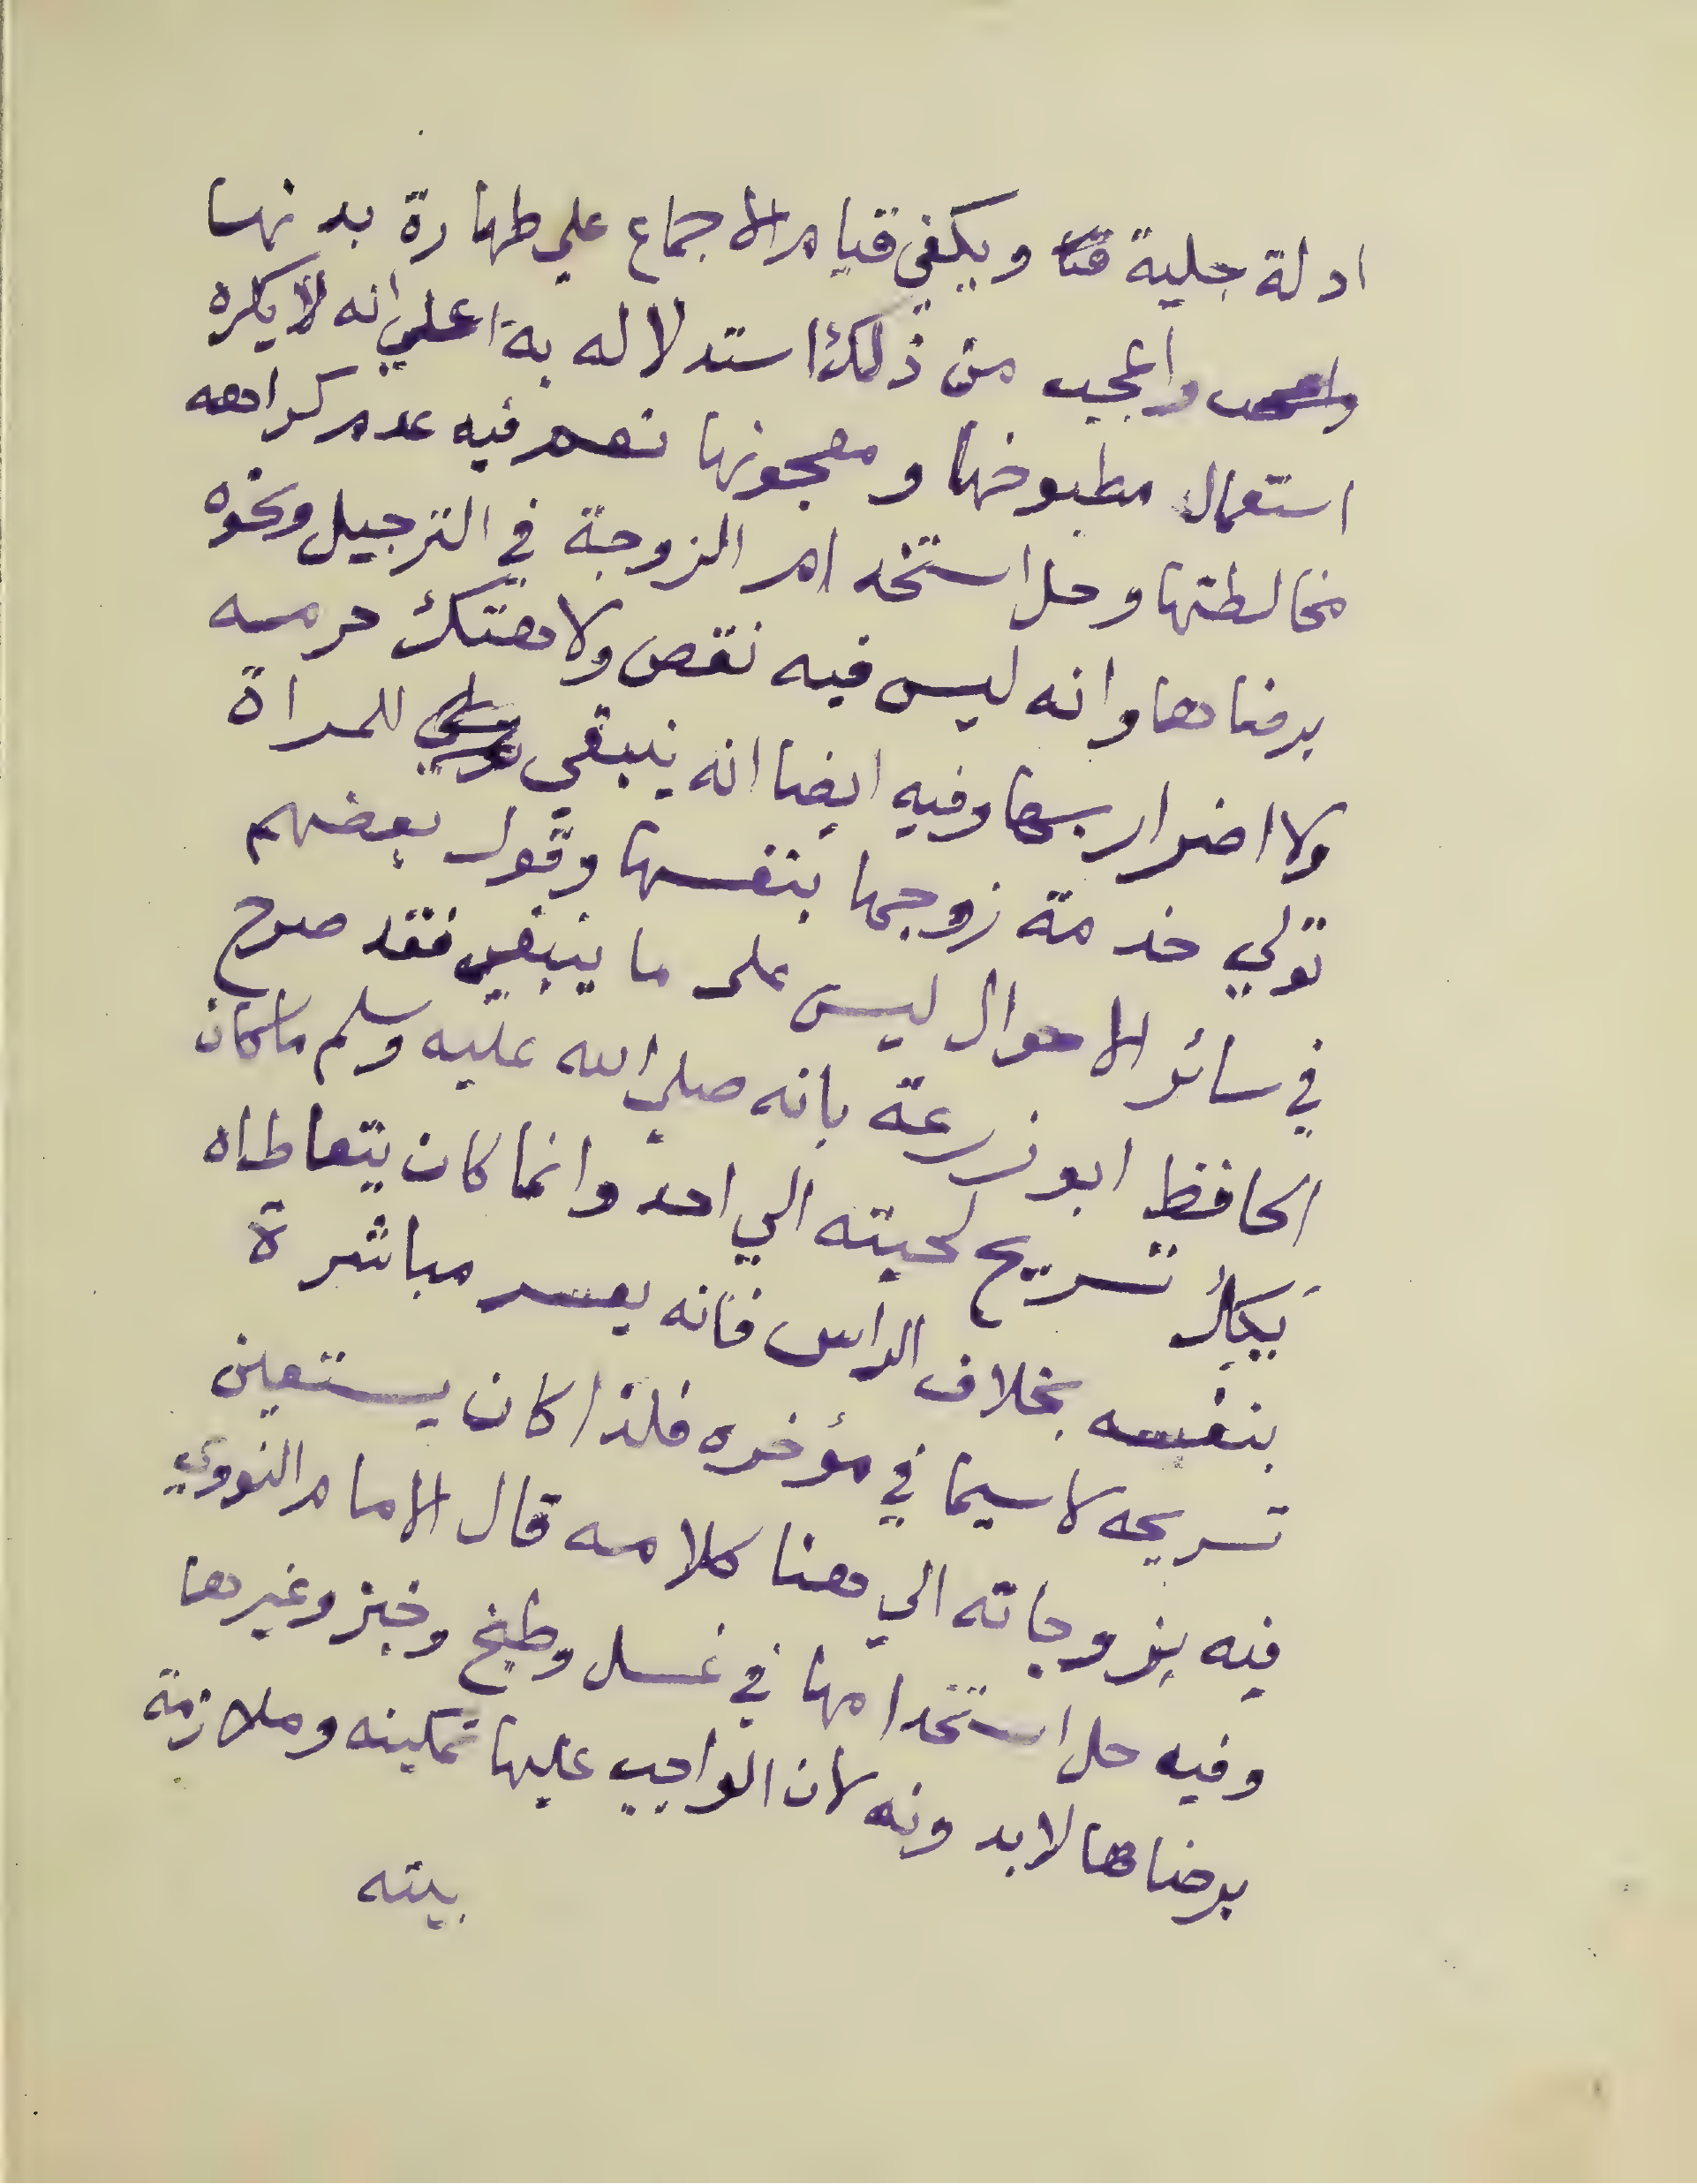 ادلة جلية ويكفي قيام الاجماع علي طهارة بدنها
واعجب من ذلك استدلاله به علي انه لا يكره
استعمال مطبوخها ومعجونها نعم فيه عدم كراهه
مخالطتها وحل استخدام الزوجة في الترجيل ونحوه
برضاها وانه ليس فيه نقص ولا هتك حرمه
ولا اضرار بها وفيه ايضا انه ينبغي للمراة
تولي خدمة زوجها بنفسها وقول بعضهم
في سائر الاحوال ليس على ما ينبغي فقد صرح
الحافظ ابو زرعة بانه صلي الله عليه وسلم ما كان
يكل تسريح لحيته الي احد وانما كان يتعاطاه
بنفسه بخلاف الراس فانه يعسر مباشرة
تسريحه لا سيما في مؤخره فلذا كان يستعين
فيه بزوجاته الي هنا كلامه قال الامام النووي
وفيه حل استخدامها في غسل وطبخ وخبز وغيرها
برضاها لا بدونه لان الواجب عليها تمكينه وملازمة
بيته